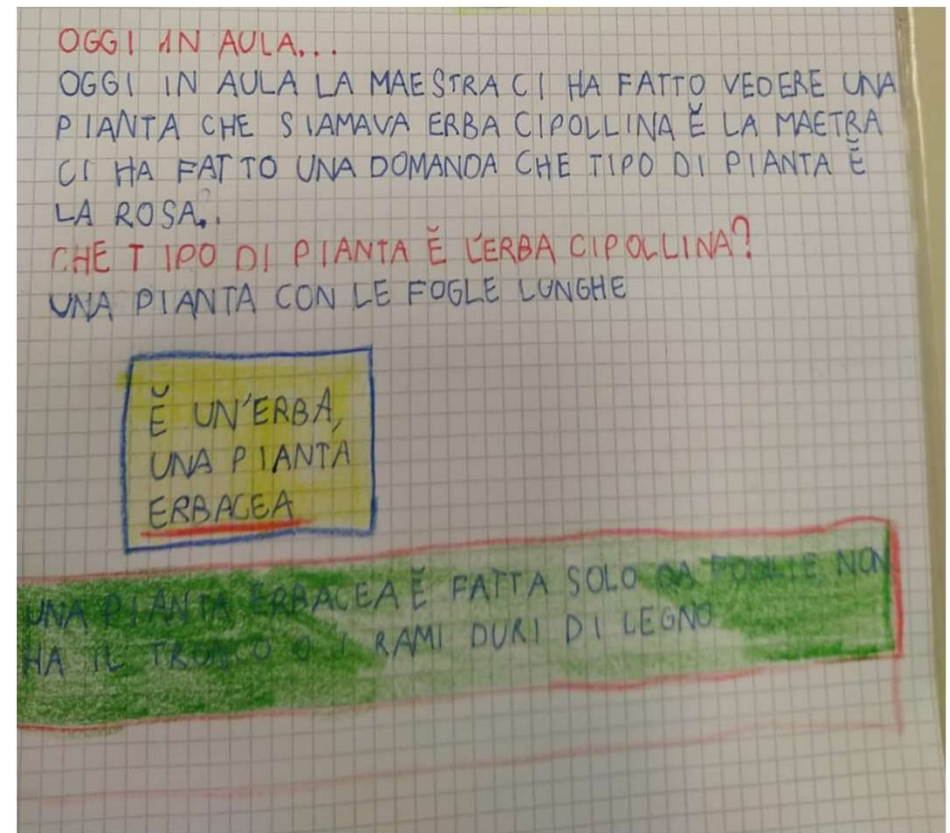 OGGI IN AULA...
OGGI IN AULA LA MAESTRA CI HA FATTO VEDERE UNA
PIANTA CHE SIAMAVA ERBA CIPOLLINA È LA MAETRA
CI HA FATTO UNA DOMANDA CHE TIPO DI PIANTA È
LA ROSA..
CHE TIPO DI PIANTA È L'ERBA CIPOLLINA?
UNA PIANTA CON LE FOGLE LUNGHE
È UN'ERBA,
UNA PIANTA
ERBACEA
UNA PIANTA ERBACEA È FATTA SOLO DA FOGLIE NON
HA IL TRONCO O I RAMI DURI DI LEGNO